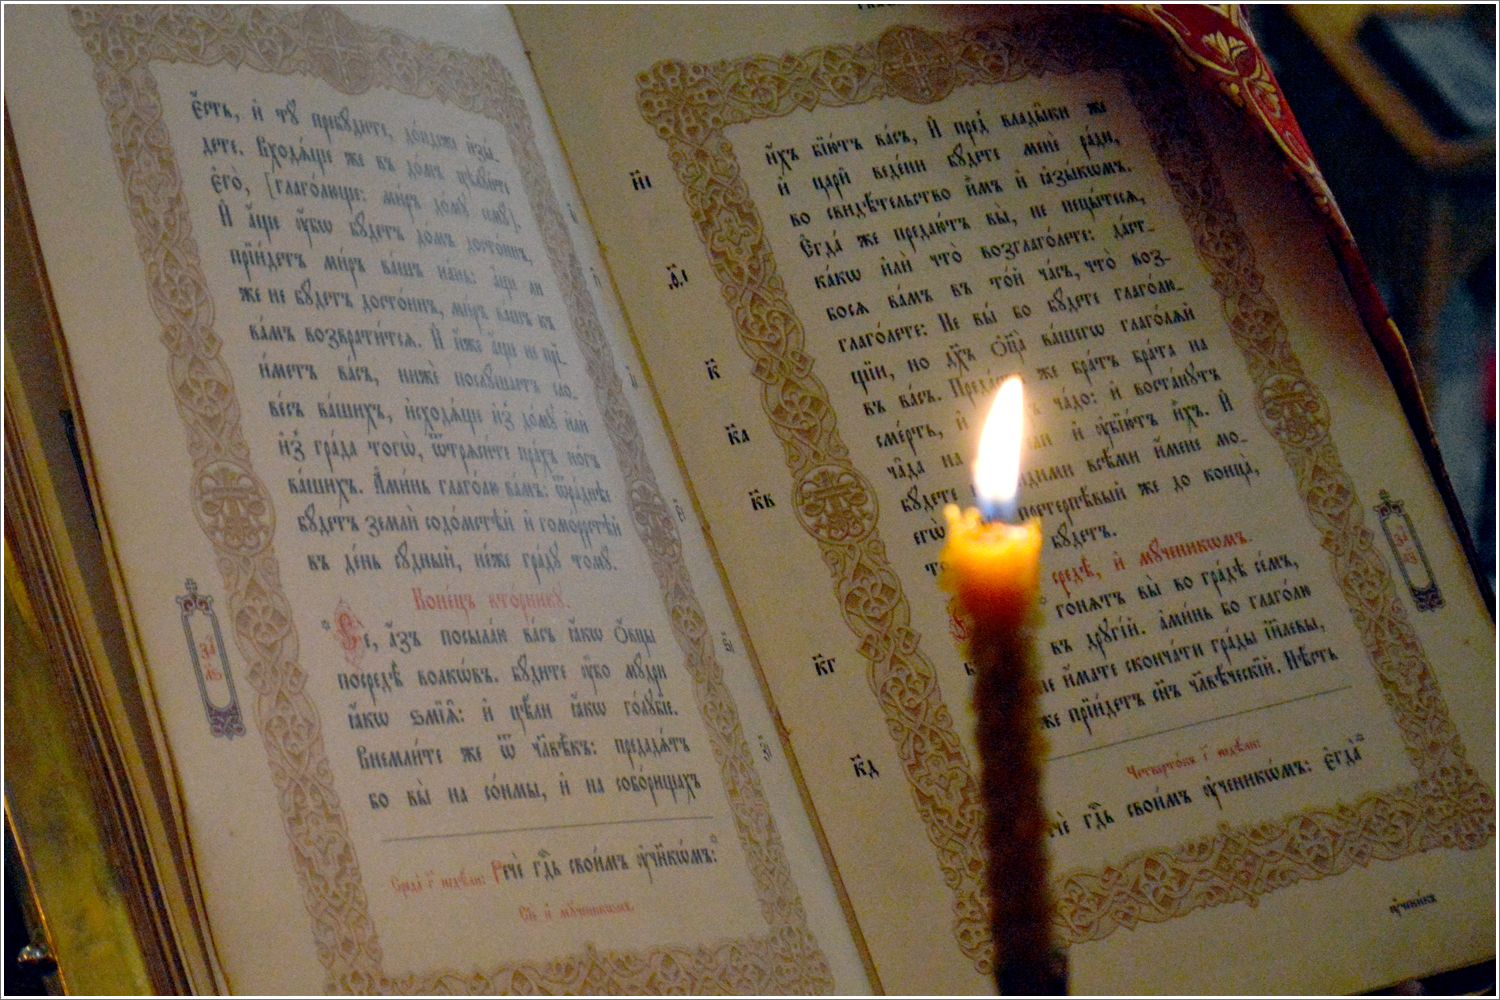 є҆́сть, и҆ тꙋ̀ пребꙋ́дите, до́ндеже и҆зы́-
дете. Входѧ́ще же въ до́мъ цѣлꙋ́йте
є҆го̀, [глаго́люще: ми́ръ до́мꙋ семꙋ̀].
И҆ а҆́ще ᲂу҆́бѡ бꙋ́детъ до́мъ досто́инъ,
прїи́детъ ми́ръ ва́шъ на́нь: а҆́ще ли
же не бꙋ́детъ досто́инъ, ми́ръ ва́шъ къ
ва́мъ возврати́тсѧ. И҆ и҆́же а҆́ще не прї-
и́метъ ва́съ, нижѐ послꙋ́шаетъ сло-
ве́съ ва́шихъ, и҆сходѧ́ще и҆з̾ до́мꙋ и҆лѝ
и҆з̾ гра́да тогѡ̀, ѿтрѧси́те пра́хъ но́гъ
ва́шихъ. А҆ми́нь глаго́лю ва́мъ: ѿра́днѣе
бꙋ́детъ землѝ содо́мстѣй и҆ гомо́ррстѣй
въ де́нь сꙋ́дный, не́же гра́дꙋ томꙋ̀.
Коне́цъ вто́рникꙋ.
Сѐ, а҆́зъ посыла́ю ва́съ ꙗ҆́кѡ ѻ҆́вцы
посредѣ̀ волкѡ́въ. бꙋ́дите ᲂу҆̀бо мꙋ́дри
ꙗ҆́кѡ ѕмїѧ̑: и҆ цѣ́ли ꙗ҆́кѡ го́лꙋбїе.
Внемли́те же ѿ человѣ̑къ: предадѧ́тъ
бо вы̀ на со́нмы, и҆ на собо́рищахъ
Среда̀ г҃ недѣ́ли: Речѐ гдⷭ҇ь свои́мъ ᲂу҆чн҃кѡ́мъ:
Сѐ и҆ мꙋ́ченикѡмъ.
и҆́хъ бїю́тъ ва́съ, И҆ пред̾ влады̑ки же
и҆ цари̑ веде́ни бꙋ́дете менє̀ ра́ди,
во свидѣ́тельство и҆̀мъ и҆ ꙗ҆зы́кѡмъ.
Є҆гда́ же предаю́тъ вы̀, не пецы́тесѧ,
ка́кѡ и҆лѝ что̀ возглаго́лете: да́ст-
восѧ ва́мъ въ то́й ча́съ, что̀ воз-
глаго́лете: Не вы́ бо бꙋ́дете глаго́лю-
щїи, но дх҃ъ ѻ҆ц҃а̀ ва́шегѡ глаго́лѧй
въ ва́съ. же бра́тъ бра́та на
сме́рть, и҆ ча́до: и҆ воста́нꙋтъ
ча̑да на и҆ ᲂу҆бїю́тъ и҆́хъ. И҆
бꙋ́дете всѣ́ми и҆́мене мо-
егѡ̀ претерпѣ́вый же до конца̀,
бꙋ́детъ.
средѣ̀, и҆ мꙋ́ченикѡмъ.
го́нѧтъ вы̀ во гра́дѣ се́мъ,
въ дрꙋгі́й. а҆ми́нь бо глаго́лю
не и҆́мате сконча́ти гра́ды і҆и҃лєвы,
же прїи́детъ сн҃ъ чл҃вѣ́ческїй. Нѣ́сть
Четверто́къ г҃ недѣ́ли:
гдⷭ҇ь свои́мъ ᲂу҆ченикѡ́мъ: Є҆гда̀
н҃і
ѳ҃і
к҃
к҃а
к҃в
к҃г
к҃д
за
ᲂу҆чени́къ